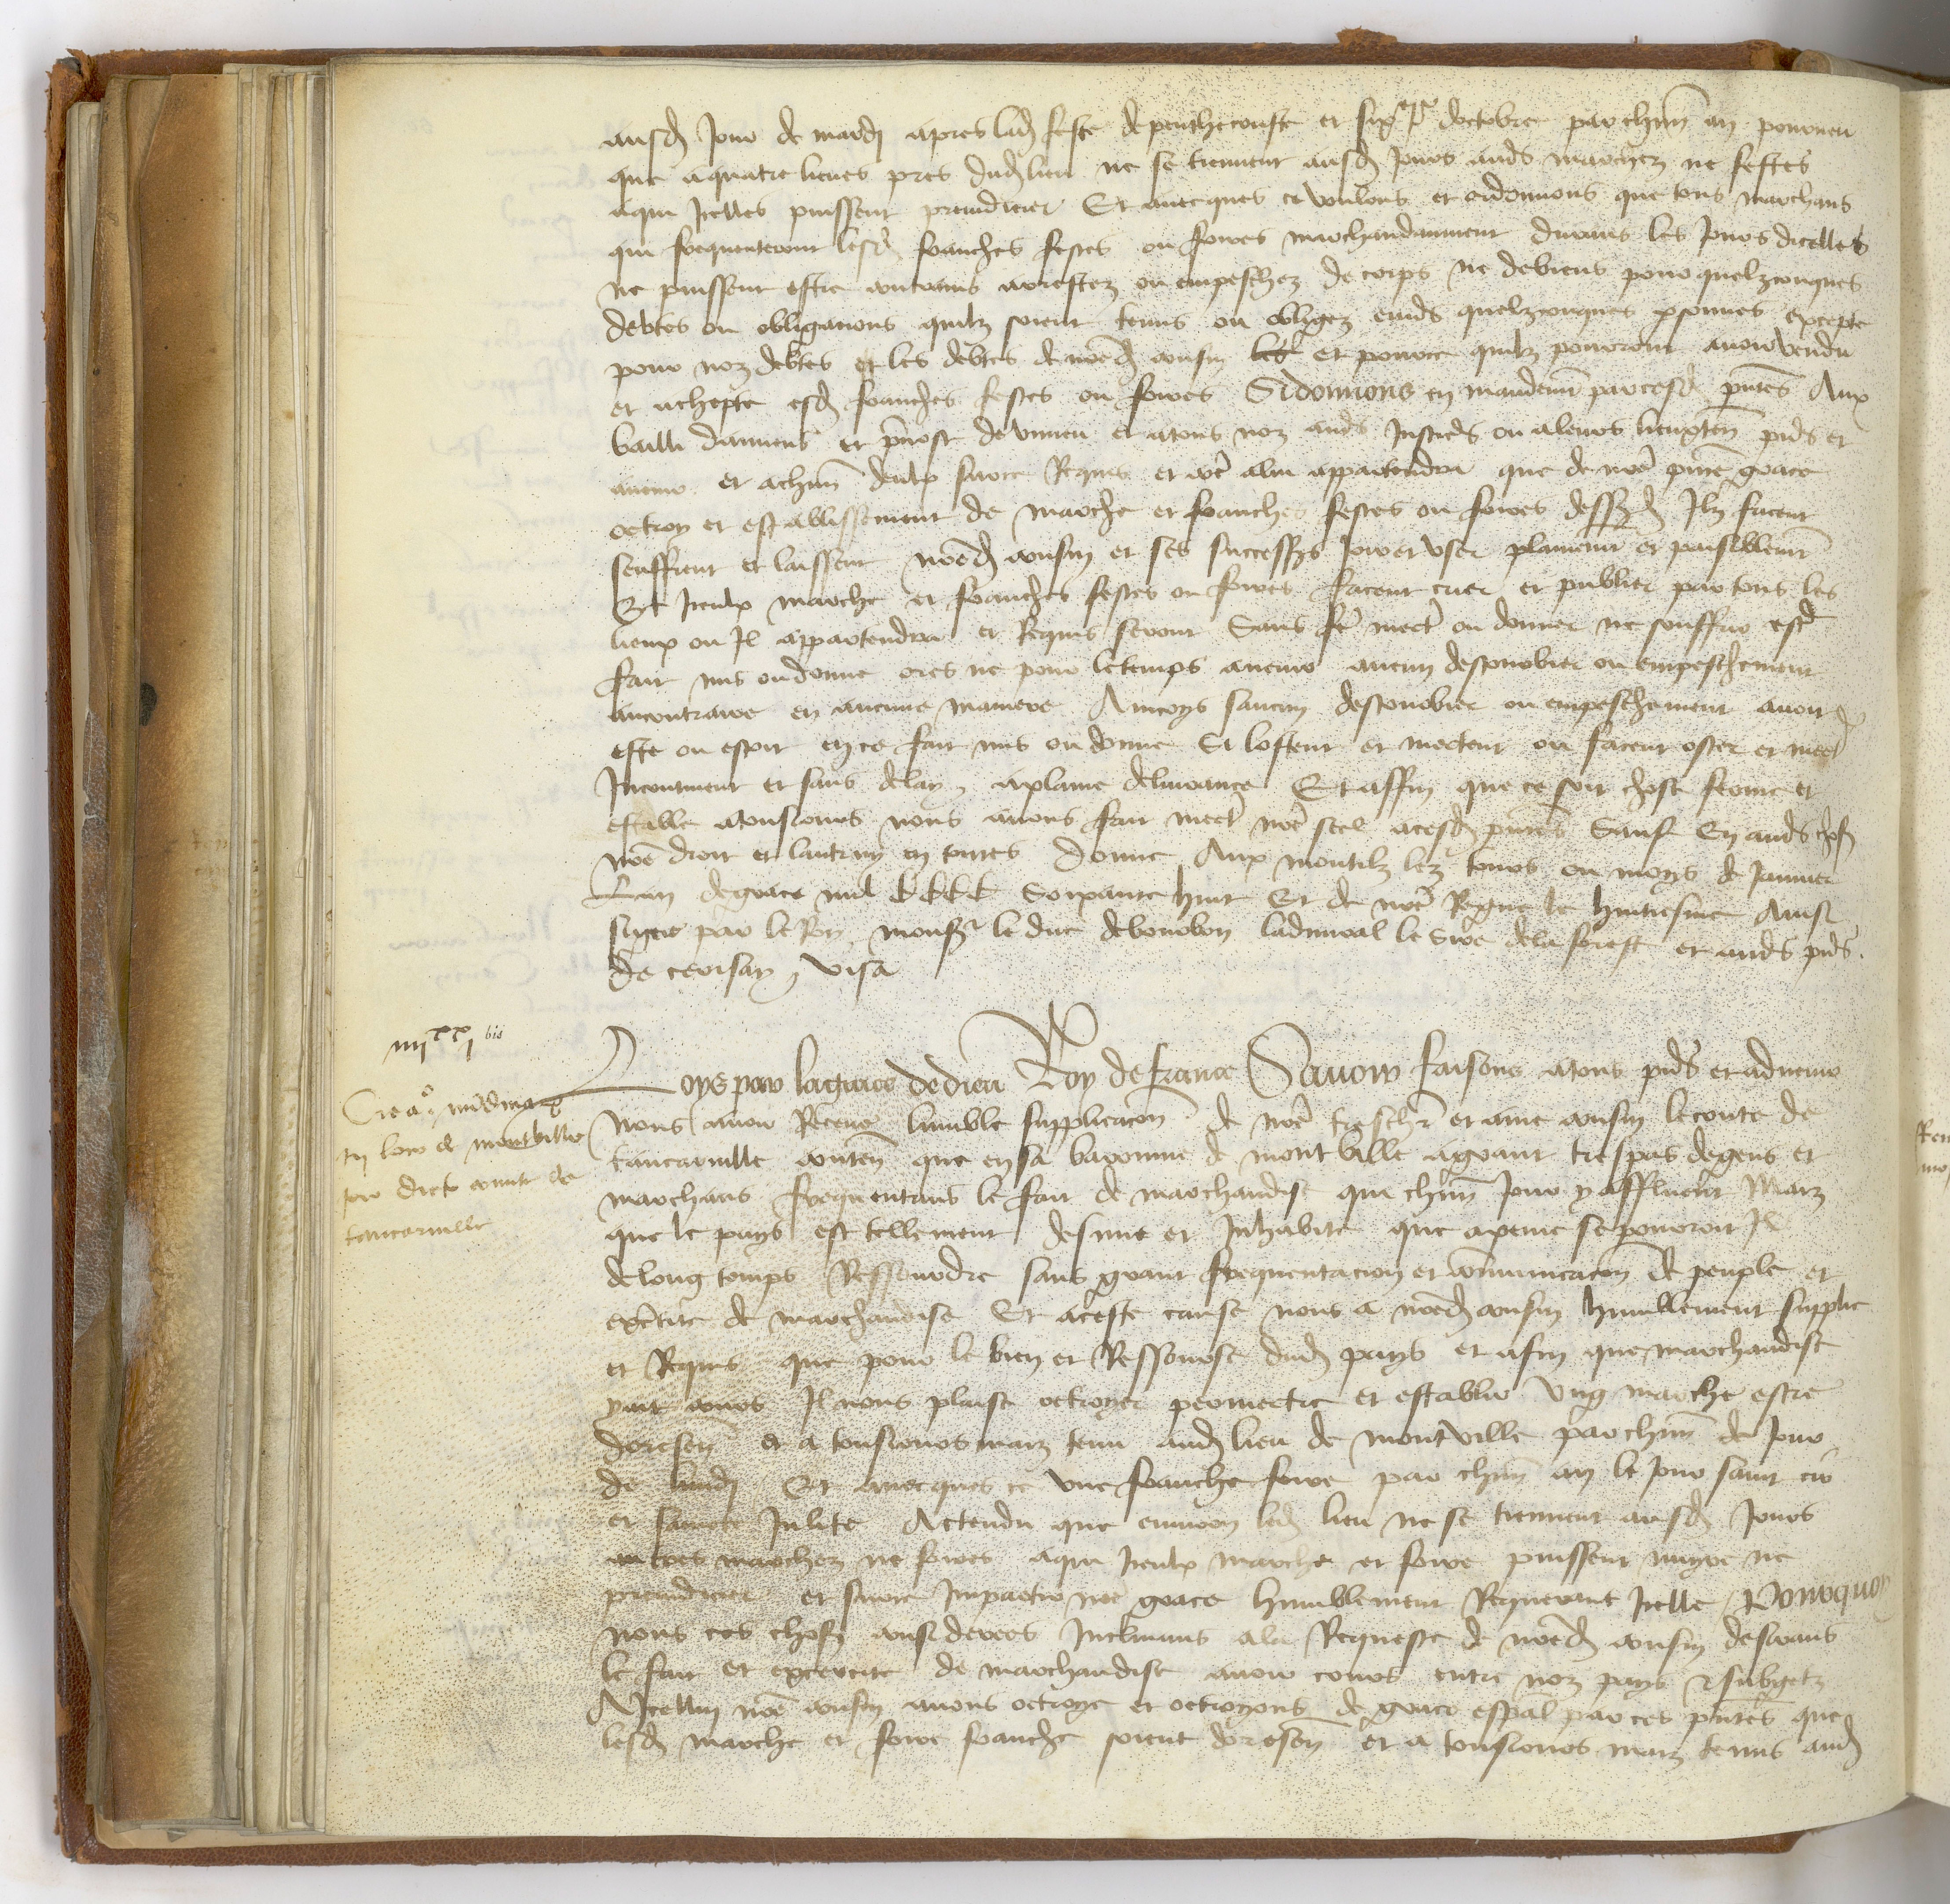 ausd Jour de mardi apres lad feste de penthecouste et sixe jor doctobre par chun an pourveu
que a quatre lieues pres dud lieu ne se tiennent ausd Jours auds marchez ne festes
a qui Icelles puissent preiudicier Et avecques ce voulons et ordonnons que tous marchans
qui frequenteront lesd franches festes ou foires marchandanment durans les Jours dicelles
ne puissent estre contrains arrestez ou empeschez de corps ne de biens pour quelzconques
debtes ou obligacions quilz soient tenus ou obligez enuds quelzconques psonnes excepte
pour noz debtes et les debtes de nred cousin les et pour ce quilz pourront avoir vendu
et achepte esd franches festes ou foires Si donnons en mandemt par cesd pntes Aux
bailli damiens et pvost de vimeu et a tous noz auds Justicis ou a leurs lieuxten pns et
avenir et a chun deulx sur ce Requis et coe a lui appartendra que de nre pnte grace
octroy et establissement de marche et franches festes ou foires dessusd Ilz facent
seuffrent et laissent nred cousin et ses successrs Joir et user plainemt et paisiblemt
Et Iceulx marche et franches festes ou foires facent crier et publier par tous les
lieux ou Il appartendra et Requis seront Sans fe mectre ou donner ne souffrir estre
fait mis ou donne ores ne pour le temps avenir aucun destourbier ou empeschement
au contraire en aucune maniere Aincoys saucun destourbier ou empeschement avoit
este ou estoit en ce fait mis ou donne Si lostent et mectent ou facent oster et mectre
Incontinent et sans delay a plaine delivrance Et affin que ce soit chose ferme et
estable a tousiours nous avons fait mectre nre seel a cesd pntes Sauf en auds choses
nre droit et lautruy en toutes Donne Aux montilz lez tours ou moys de Janvier
Lan de grace mil cccc Soixante huit Et de nre Regne le huitiesme Ainsi
signe par le Roy monsr le duc de bourbon ladmiral le Sire de la forest et auds pns
de cerisay Visa
iiiixx i bis
Loys par la grace de dieu Roy de france Savoir faisons a tous pns et advenir
Nous avoir Receue lumble supplicacon de nre trescher et ame cousin le conte de
tancarville conten que en sa baronnie de montville a grant trespas de gens et
marchans frequentans le fait de marchandise que chun Jour y affluent Maiz
que le pays est tellement desnue et Inhabite que a peine se pourroit Il
de long temps Ressourdre sans grant frequentacion et communicacon de peuple et
exercite de marchandise Et a ceste cause nous a nred cousin humblement supplie
et Requis que pour le bien et Ressourse dud pays et afin que marchandise
y ait cours Il nous plaise octroyer permectre et establir ung marche estre
doresen et a tousiours maiz tenu aud lieu de montville par chun de Jour
de lundi Et avecques ce une franche foire par chun an le Jour saint cir
et saincte Julite Actendu que environ led lieu ne se tiennent ausd Jours
autres marchez ne foires a qui Iceulx marche et foire puissent nuyre ne
preiudicier et sur ce Impartir nre grace humblement Requerant Icelle Pourquoy
nous ces choses considerees Inclinans a la Requeste de nred cousin desirans
le fait et exercite de marchandise avoir cours entre noz pays et subgetz
A Icellui nre cousin avons octroye et octroyons de grace espal par ces pntes que
lesd marche et foire franche soient doresen et a tousiours maiz tenus aud
Creaco nundinarum
in loco de montville
pro dicto comite de
tancarville